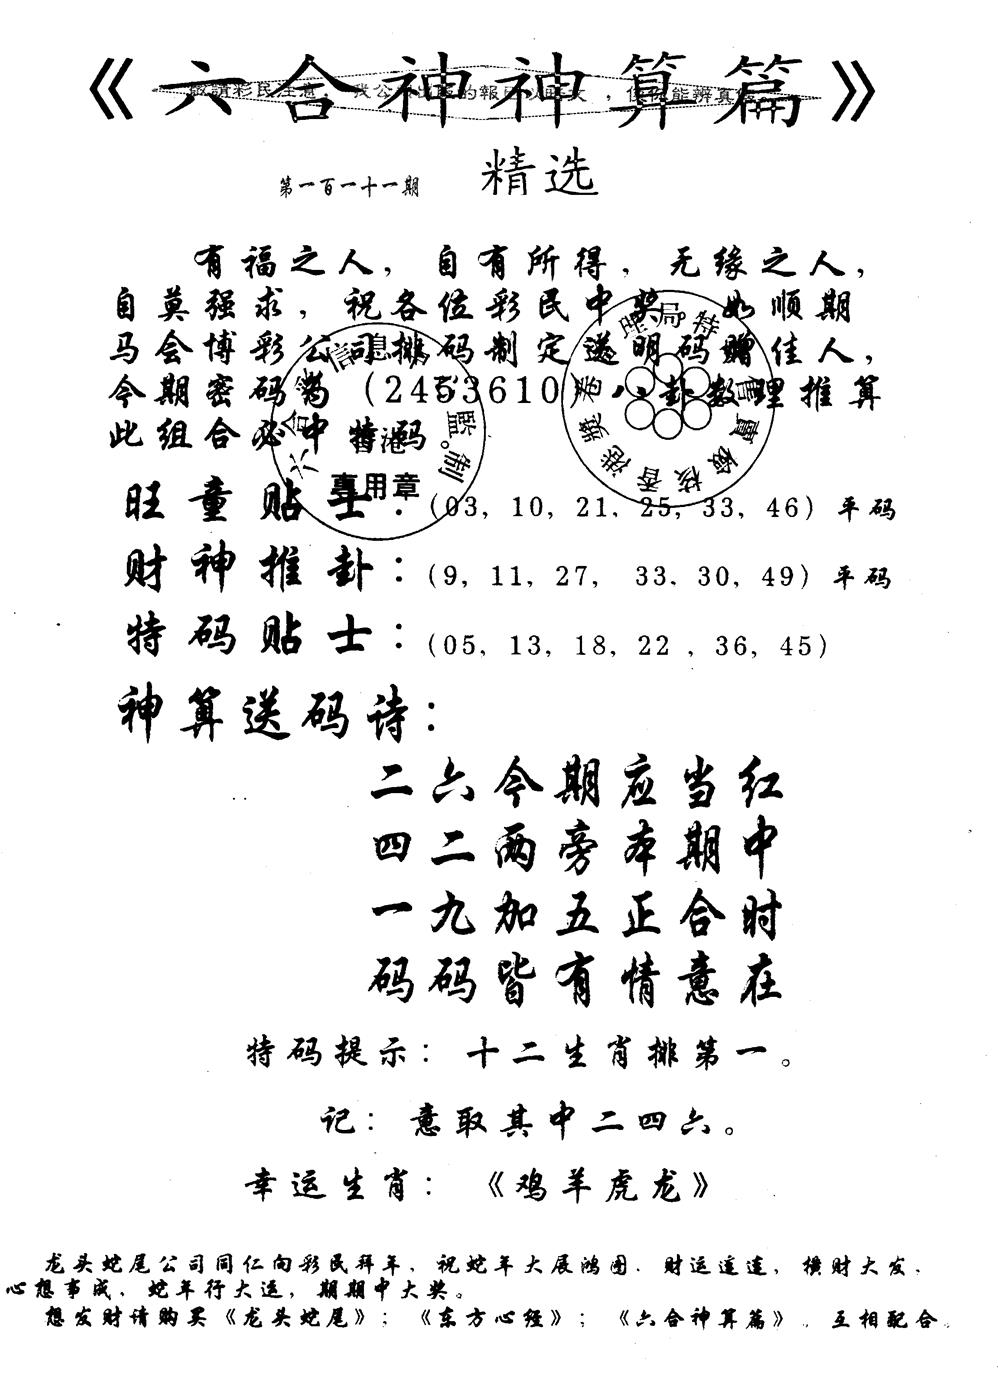 《六合神神算篇》
第一百一十一期 精选
有福之人，自有所得，无缘之人，
自莫强求，祝各位彩民中奖。如顺期
马会博彩公司排码制定送明码赠佳人，
今期密码为（2453610）八卦数理推算
此组合必中特码
旺童贴士：（03, 10, 21, 25, 33, 46）平码
财神推卦：（9, 11, 27, 33, 30, 49）平码
特码贴士：（05, 13, 18, 22 , 36, 45）
神算送码诗：
二六今期应当红
四二两旁本期中
一九加五正合时
码码皆有情意在
特码提示：十二生肖排第一。
记：意取其中二四六。
幸运生肖：《鸡羊虎龙》
龙头蛇尾公司同仁向彩民拜年，祝蛇年大展鸿图，财运连连，横财大发，
心想事成，蛇年行大运，期期中大奖。
想发财请购买《龙头蛇尾》；《东方心经》；《六合神算篇》，互相配合
專用章